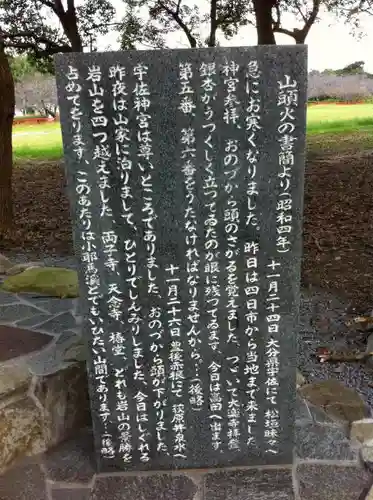 山頭火の書簡より（昭和四年）
十一月二十四日 大分県宇佐にて 松垣昧々へ
急にお寒くなりました。昨日は四日市から当地まで来ました
神宮参拝、おのづから頭のさがるを覚えました、つづいて大楽寺拝登
銀杏がうつくしく立つてゐたのが眼に残つてゐます、今日は高田へ出ます、
第五番、第六番をうたなければなりませんから、…（後略）
十一月二十六日 豊後赤根にて 荻原井泉水へ
宇佐神宮は尊いところでありました、おのづから頭が下がりました
昨夜は山家に泊りまして、ひとりでしんみりしました、今日はしぐれる
岩山を四つ越えました、両子寺、天念寺、椿堂、どれも岩山の景勝を
占めてをります、このあたりは小耶馬渓とでもいひたい山間であります…（後略）